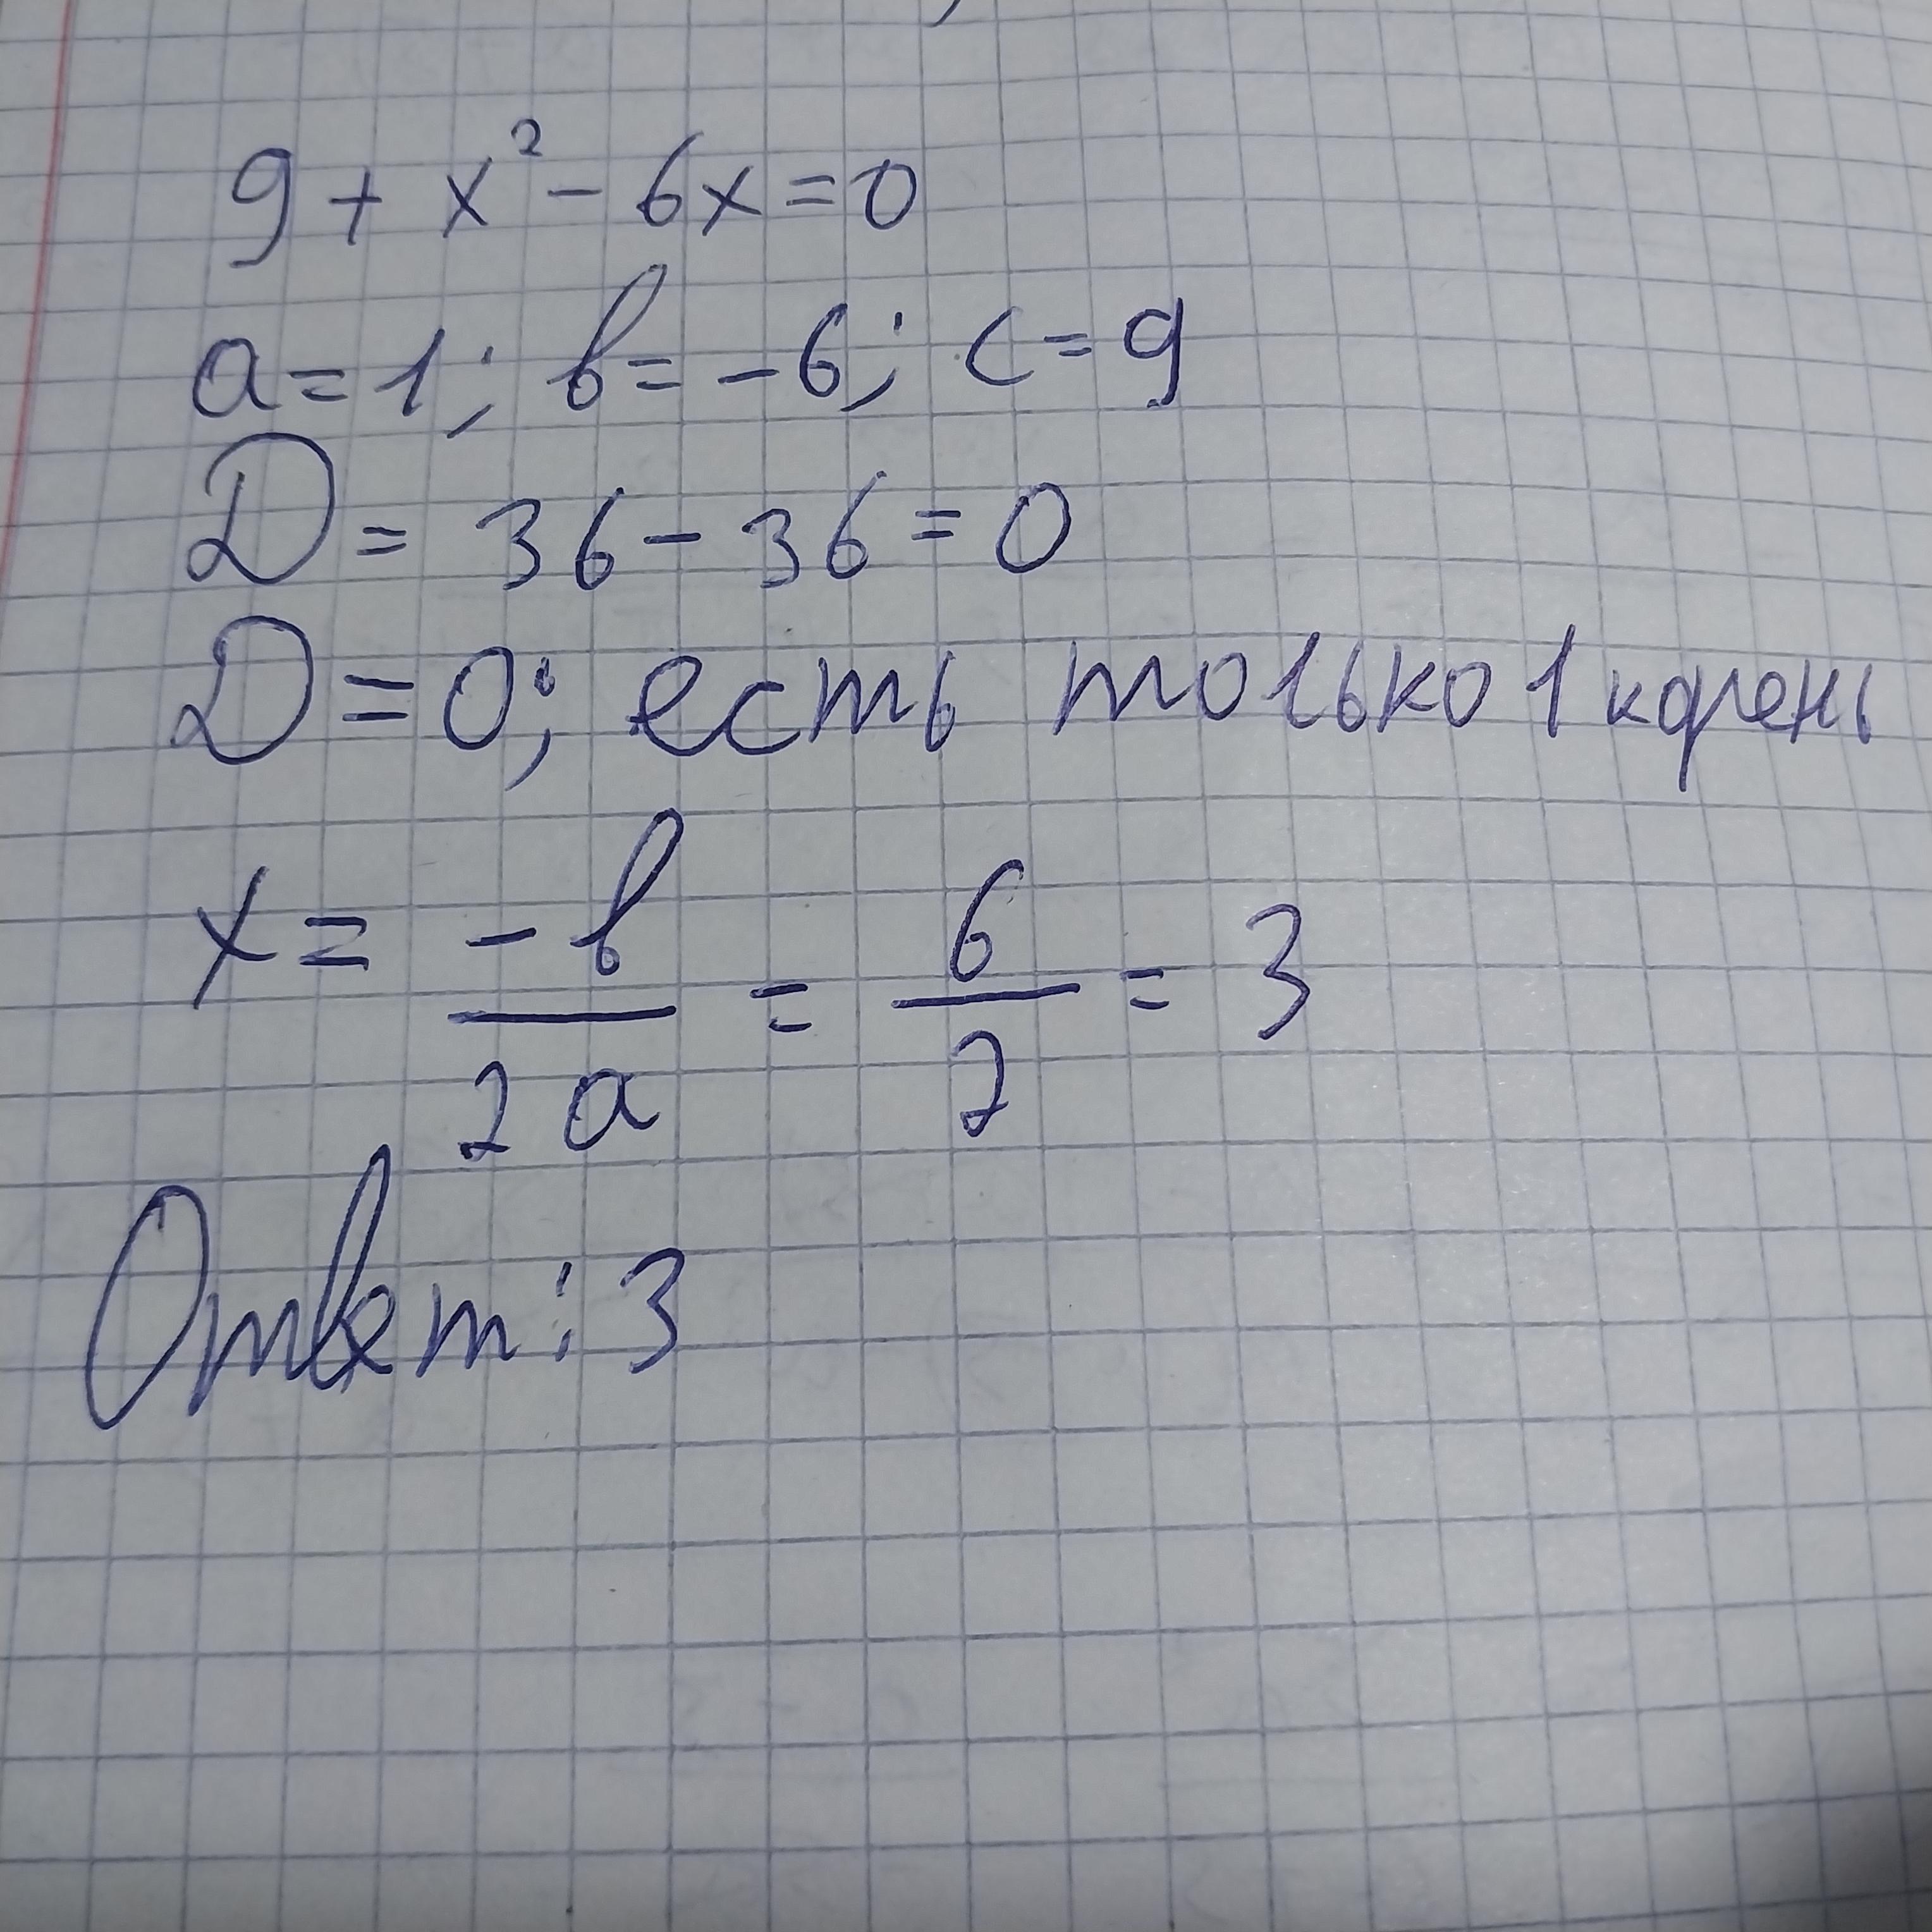 9 + x² - 6x = 0
a = 1; b = -6; c = 9
D = 36 - 36 = 0
D = 0; есть только 1 корень
x = -b / 2a = 6 / 2 = 3
Ответ: 3